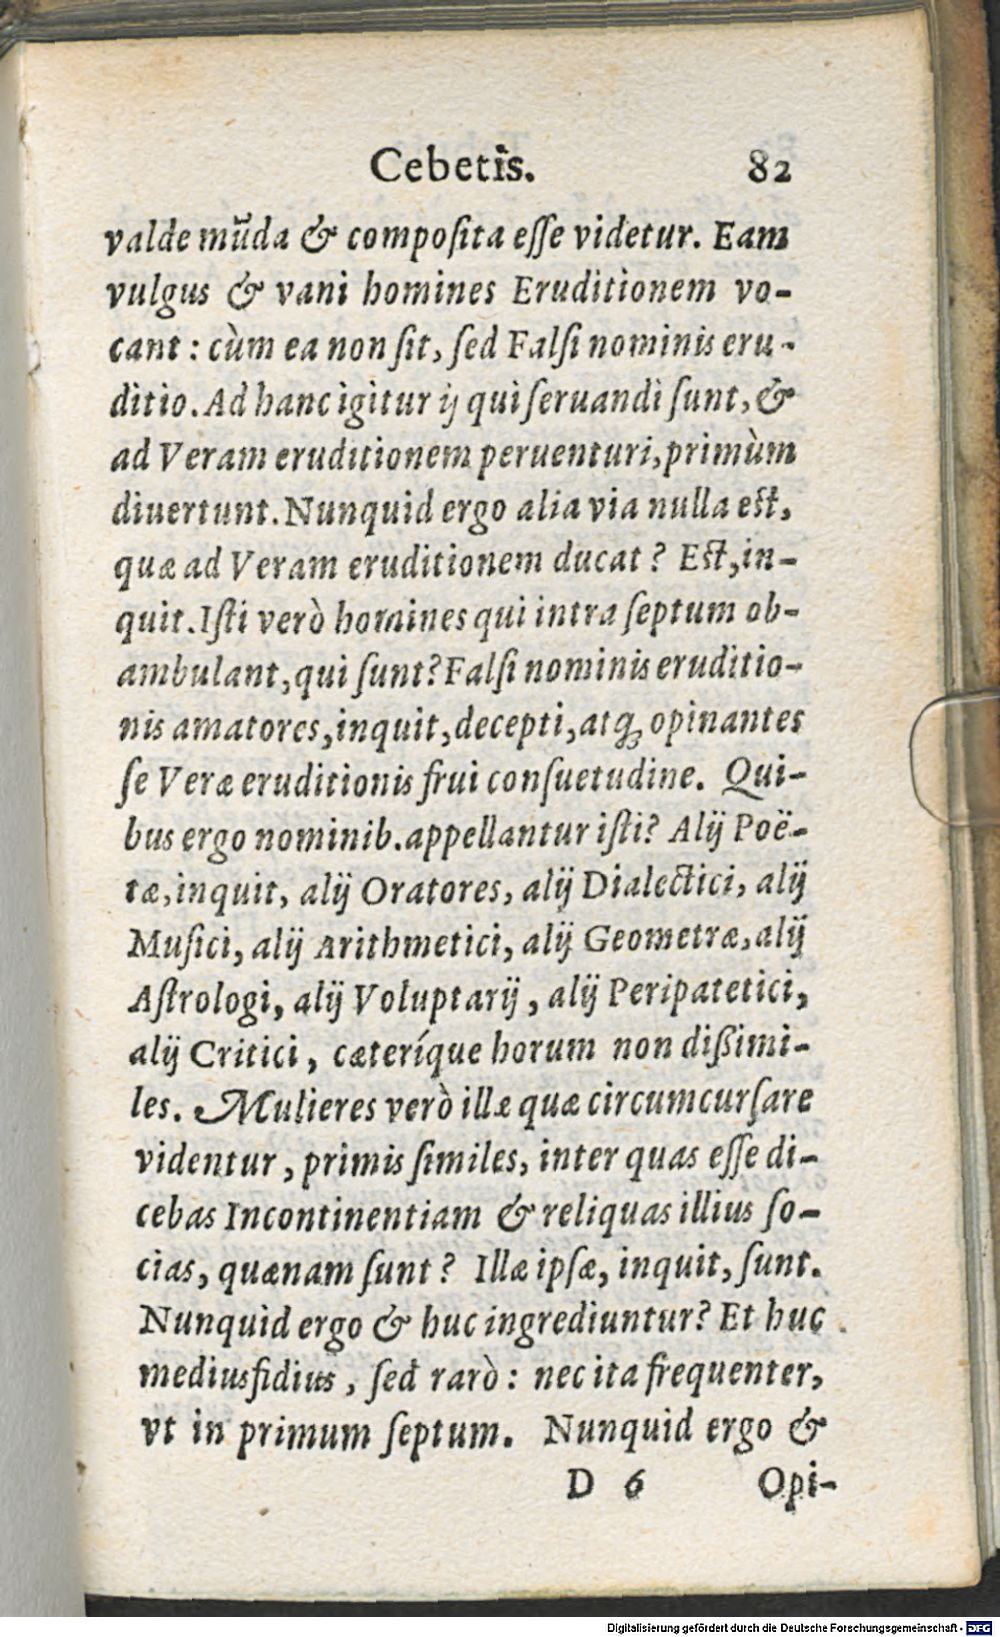 Cebetis. 82
valde mũda & composita esse videtur. Eam
vulgus & vani homines Eruditionem vo-
cant: cùm ea non sit, sed Falsi nominis eru-
ditio. Ad hanc igitur ij qui seruandi sunt, &
ad Veram eruditionem peruenturi, primùm
diuertunt. Nunquid ergo alia via nulla est,
quæ ad Veram eruditionem ducat? Est, in-
quit. Isti verò homines qui intra septum ob-
ambulant, qui sunt? Falsi nominis eruditio-
nis amatores, inquit, decepti, atq; opinantes
se Veræ eruditionis frui consuetudine. Qui-
bus ergo nominib. appellantur isti? Alij Poë-
tæ, inquit, alij Oratores, alij Dialectici, alij
Musici, alij Arithmetici, alij Geometræ, alij
Astrologi, alij Voluptarij, alij Peripatetici,
alij Critici, cæteríque horum non dißimi-
les. Mulieres verò illæ quæ circumcursare
videntur, primis similes, inter quas esse di-
cebas Incontinentiam & reliquas illius so-
cias, quænam sunt? Illæ ipsæ, inquit, sunt.
Nunquid ergo & huc ingrediuntur? Et huc
mediusfidius, sed rarò: nec ita frequenter,
vt in primum septum. Nunquid ergo &
D 6 Opi-
Digitalisierung gefördert durch die Deutsche Forschungsgemeinschaft - DFG